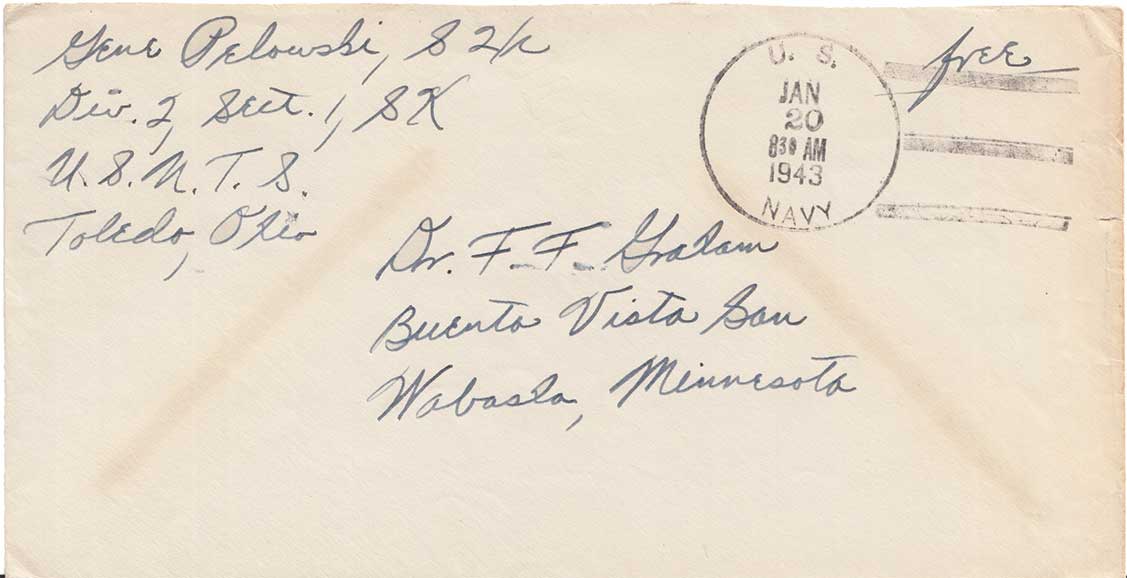 Gene Pelowski, S 2/c
Div. 2, Sect. 1, SK
U. S. N. T. S.
Toledo, Ohio
free
U. S.
JAN
20
8 30 AM
1943
NAVY
Dr. F. F. Graham
Buenta Vista San
Wabasha, Minnesota